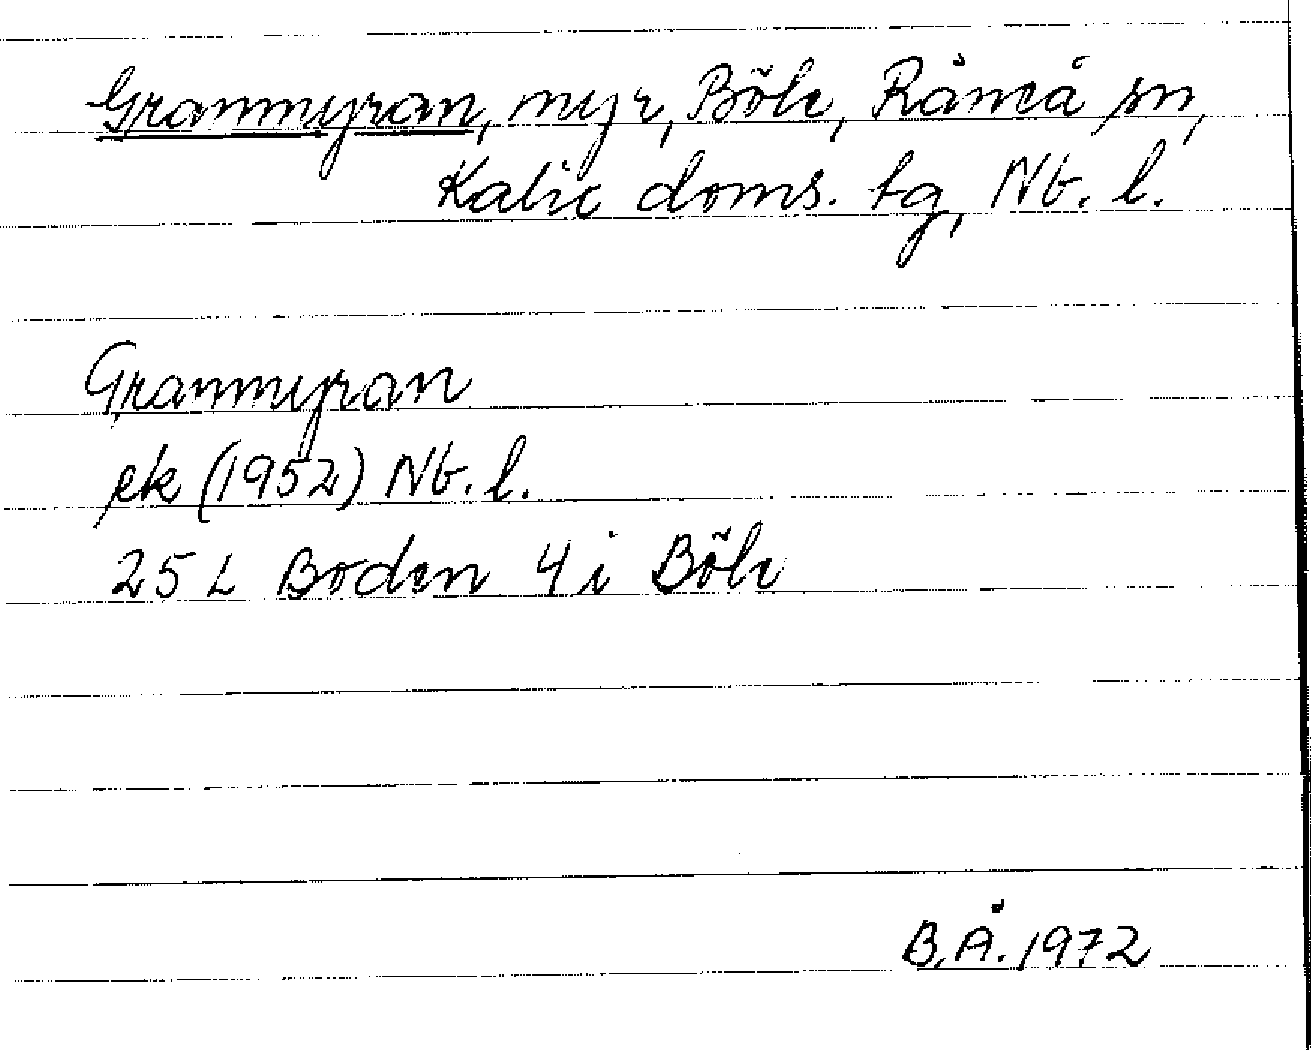 Granmyran, myr, Böle, Råneå sn,
Kalix doms. tg, Nb. l.
Granmyran
ek (1952) Nb. l.
25 L Boden 4 i Böle
B.Å. 1972